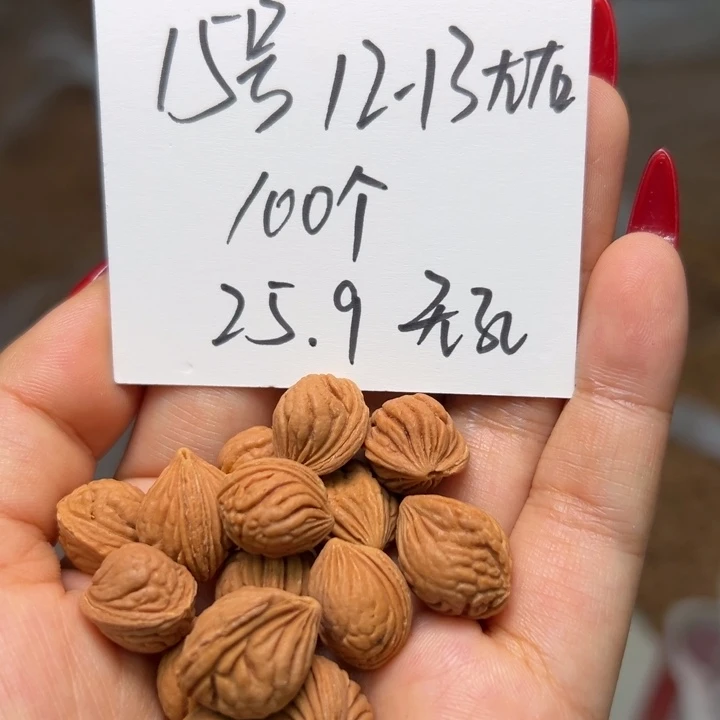 15号 12-13左右
100个
25.9 无孔